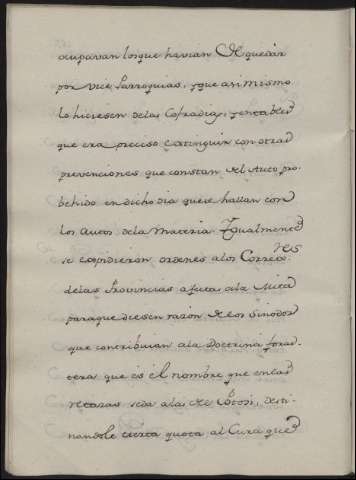 ocupavan los que havian de quedar
por Vice Parroquias, y que asi mismo
lo hiciesen de las Cofradias,
que era preciso extinguir con otras
prevenciones que constan del Auto pro-
behido en dicho dia que se hallan con
los Autos de la materia. Igualmente
se expidieron ordenes a los Corregres
de las Provincias afectas a la Mita
para que diesen razon de los Sinodos
que contribuian a la Doctrina foras-
tera que es el nombre que en las
se da a la de Potosi, desti-
nandole cierta quota al Cura que